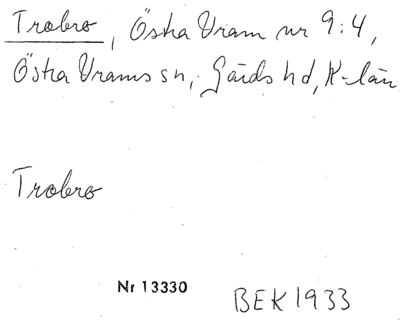 Trobro, Östra Vram nr 9:4,
Östra Vrams sn, Gärds hd, K-län
Trobro
Nr 13330
BEK 1933